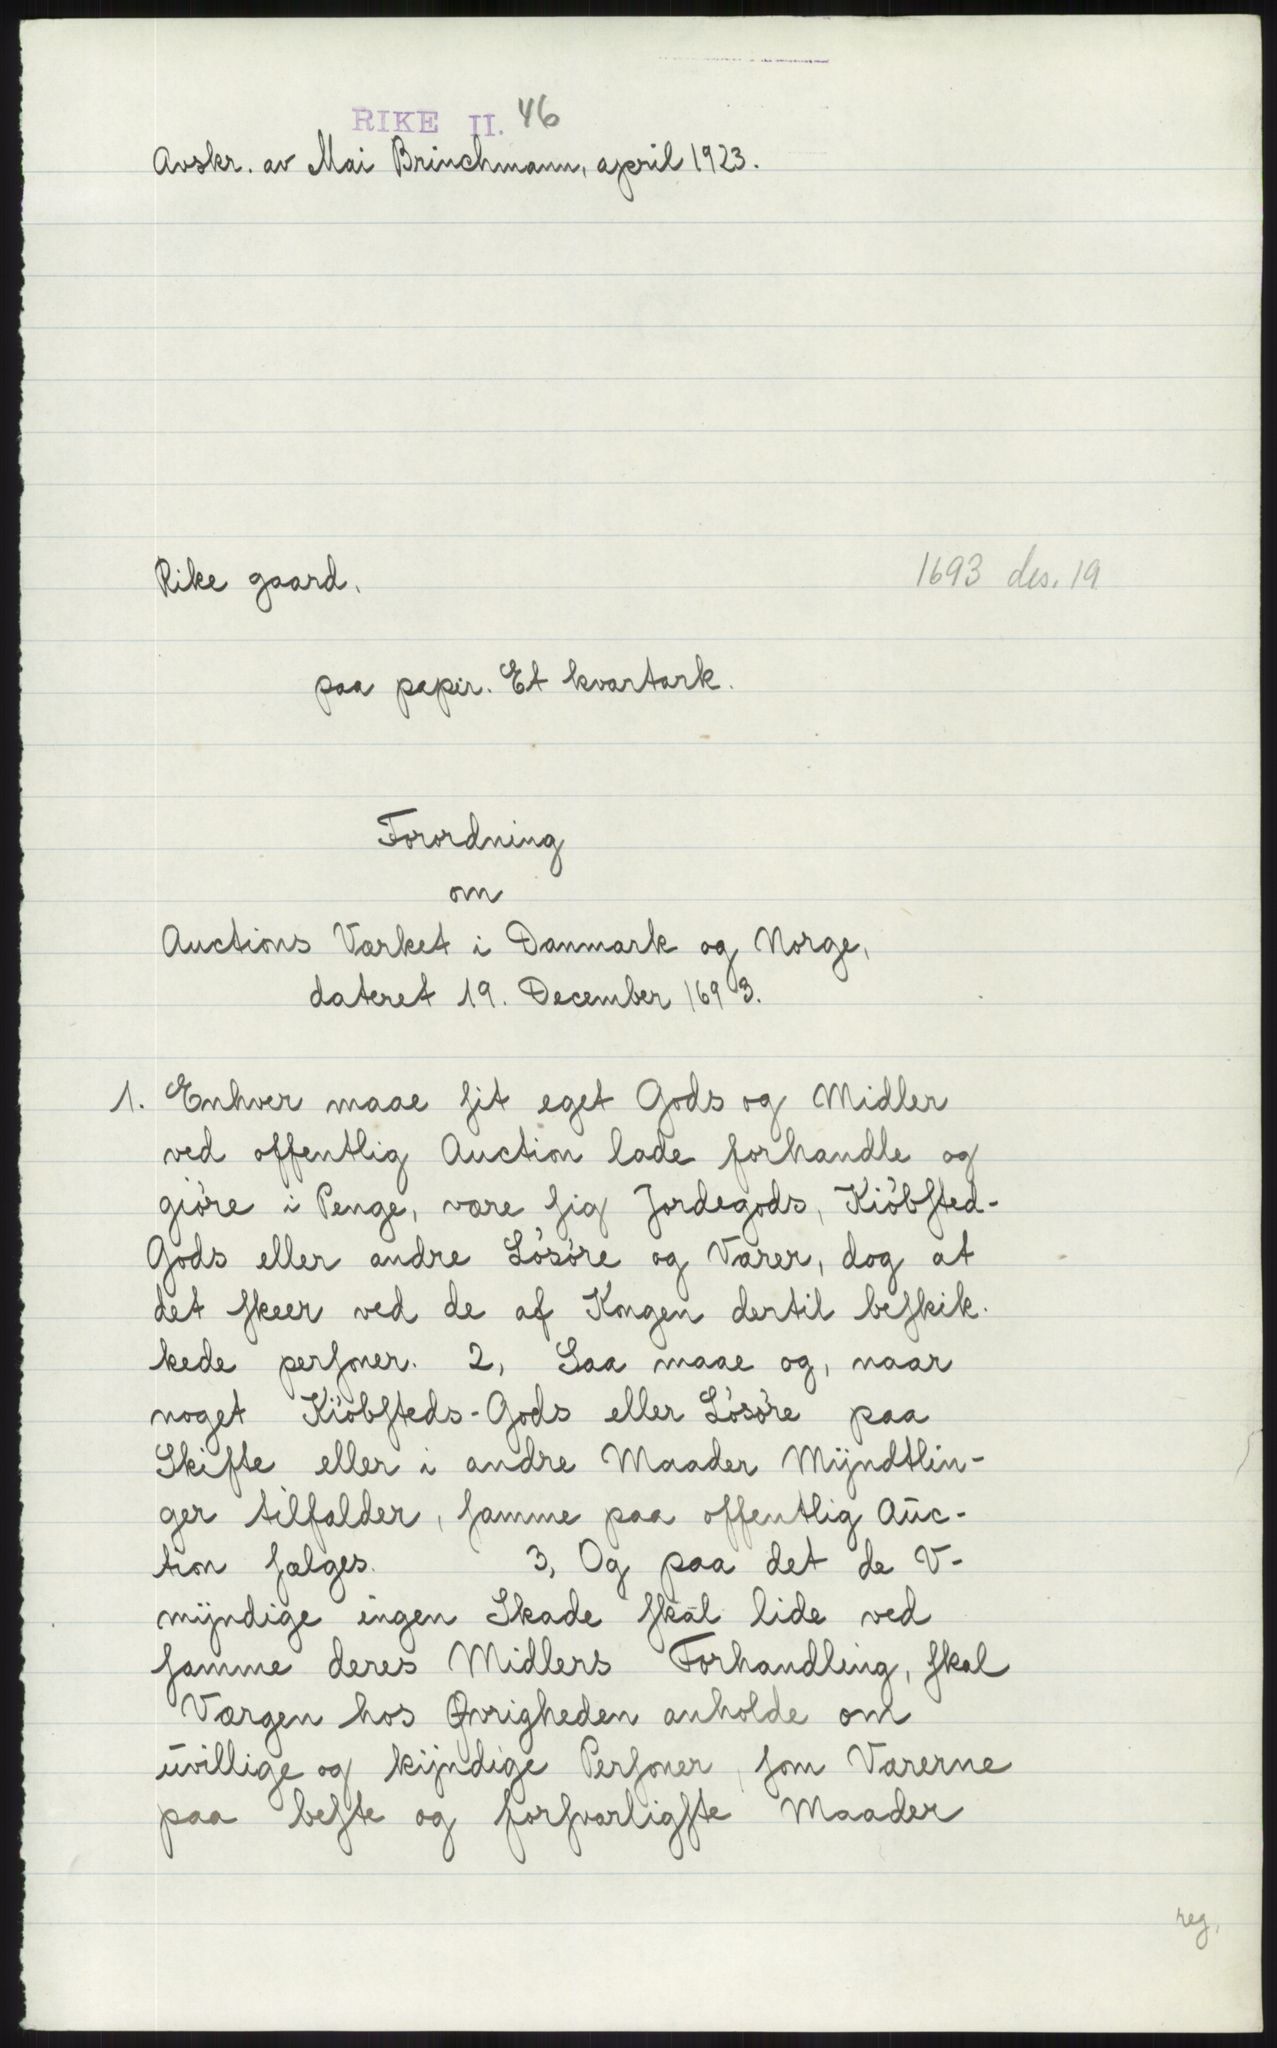 RIKE II. 46
Avskr. av Mai Brinchmann, april 1923.
Rike gaard.
1693 des. 19
paa papir. Et kvartark.
Forordning
om
Auctions Værket i Danmark og Norge,
dateret 19. December 1693.
1. Enhver maae sit eget Gods og Midler
ved offentlig Auction lade forhandle og
giöre i Penge, være sig Jordegods, Kiöbsted-
Gods eller andre Lösöre og Varer, dog at
det skeer ved de af Kongen dertil beskik-
kede personer. 2, Saa maae og, naar
noget Kiöbsteds-Gods eller Lösöre paa
Skifte eller i andre Maader Mÿndtlin-
ger tilfalder, samme paa offentlig Aūc-
tion sælges. 3, Og paa det de V-
mÿndige ingen Skade skal lide ved
samme deres Midlers Forhandling, skal
Værgen hos Øvrigheden anholde om
ūvillige og kÿndige Personer, som Varerne
paa beste og forsvarligste Maader
reg.